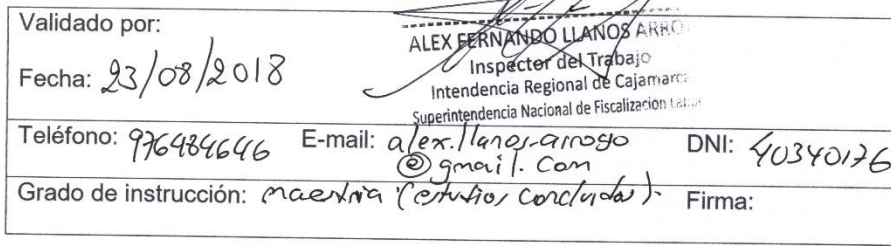 Validado por:
ALEX FERNANDO LLANOS ARRO
Inspector del Trabajo
Fecha: 23/08/2018
Intendencia Regional de Cajamarca
Superintendencia Nacional de Fiscalización Lab
Teléfono: 976484646 E-mail: alex.llanos.arroyo
@gmail.com DNI: 40340176
Grado de instrucción: maestria (estudios concluidos). Firma: